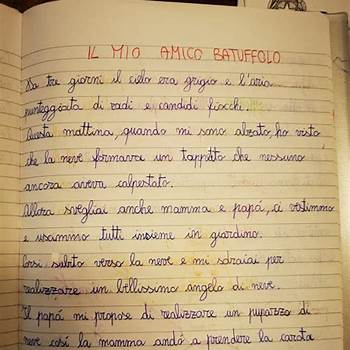 IL MIO AMICO BATUFFOLO
Da tre giorni il cielo era grigio e l'aria
punteggiata di radi e candidi fiocchi.
Questa mattina, quando mi sono alzato, ho visto
che la neve formava un tappetto che nessuno
ancora aveva calpestato.
Allora svegliai anche mamma e papá, ci vestimmo
e uscimmo tutti insieme in giardino.
Corsi subito verso la neve e mi sdraiai per
realizzare un bellissimo angelo di neve.
Il papá mi propose di realizzare un pupazzo di
neve così la mamma andó a prendere la carota